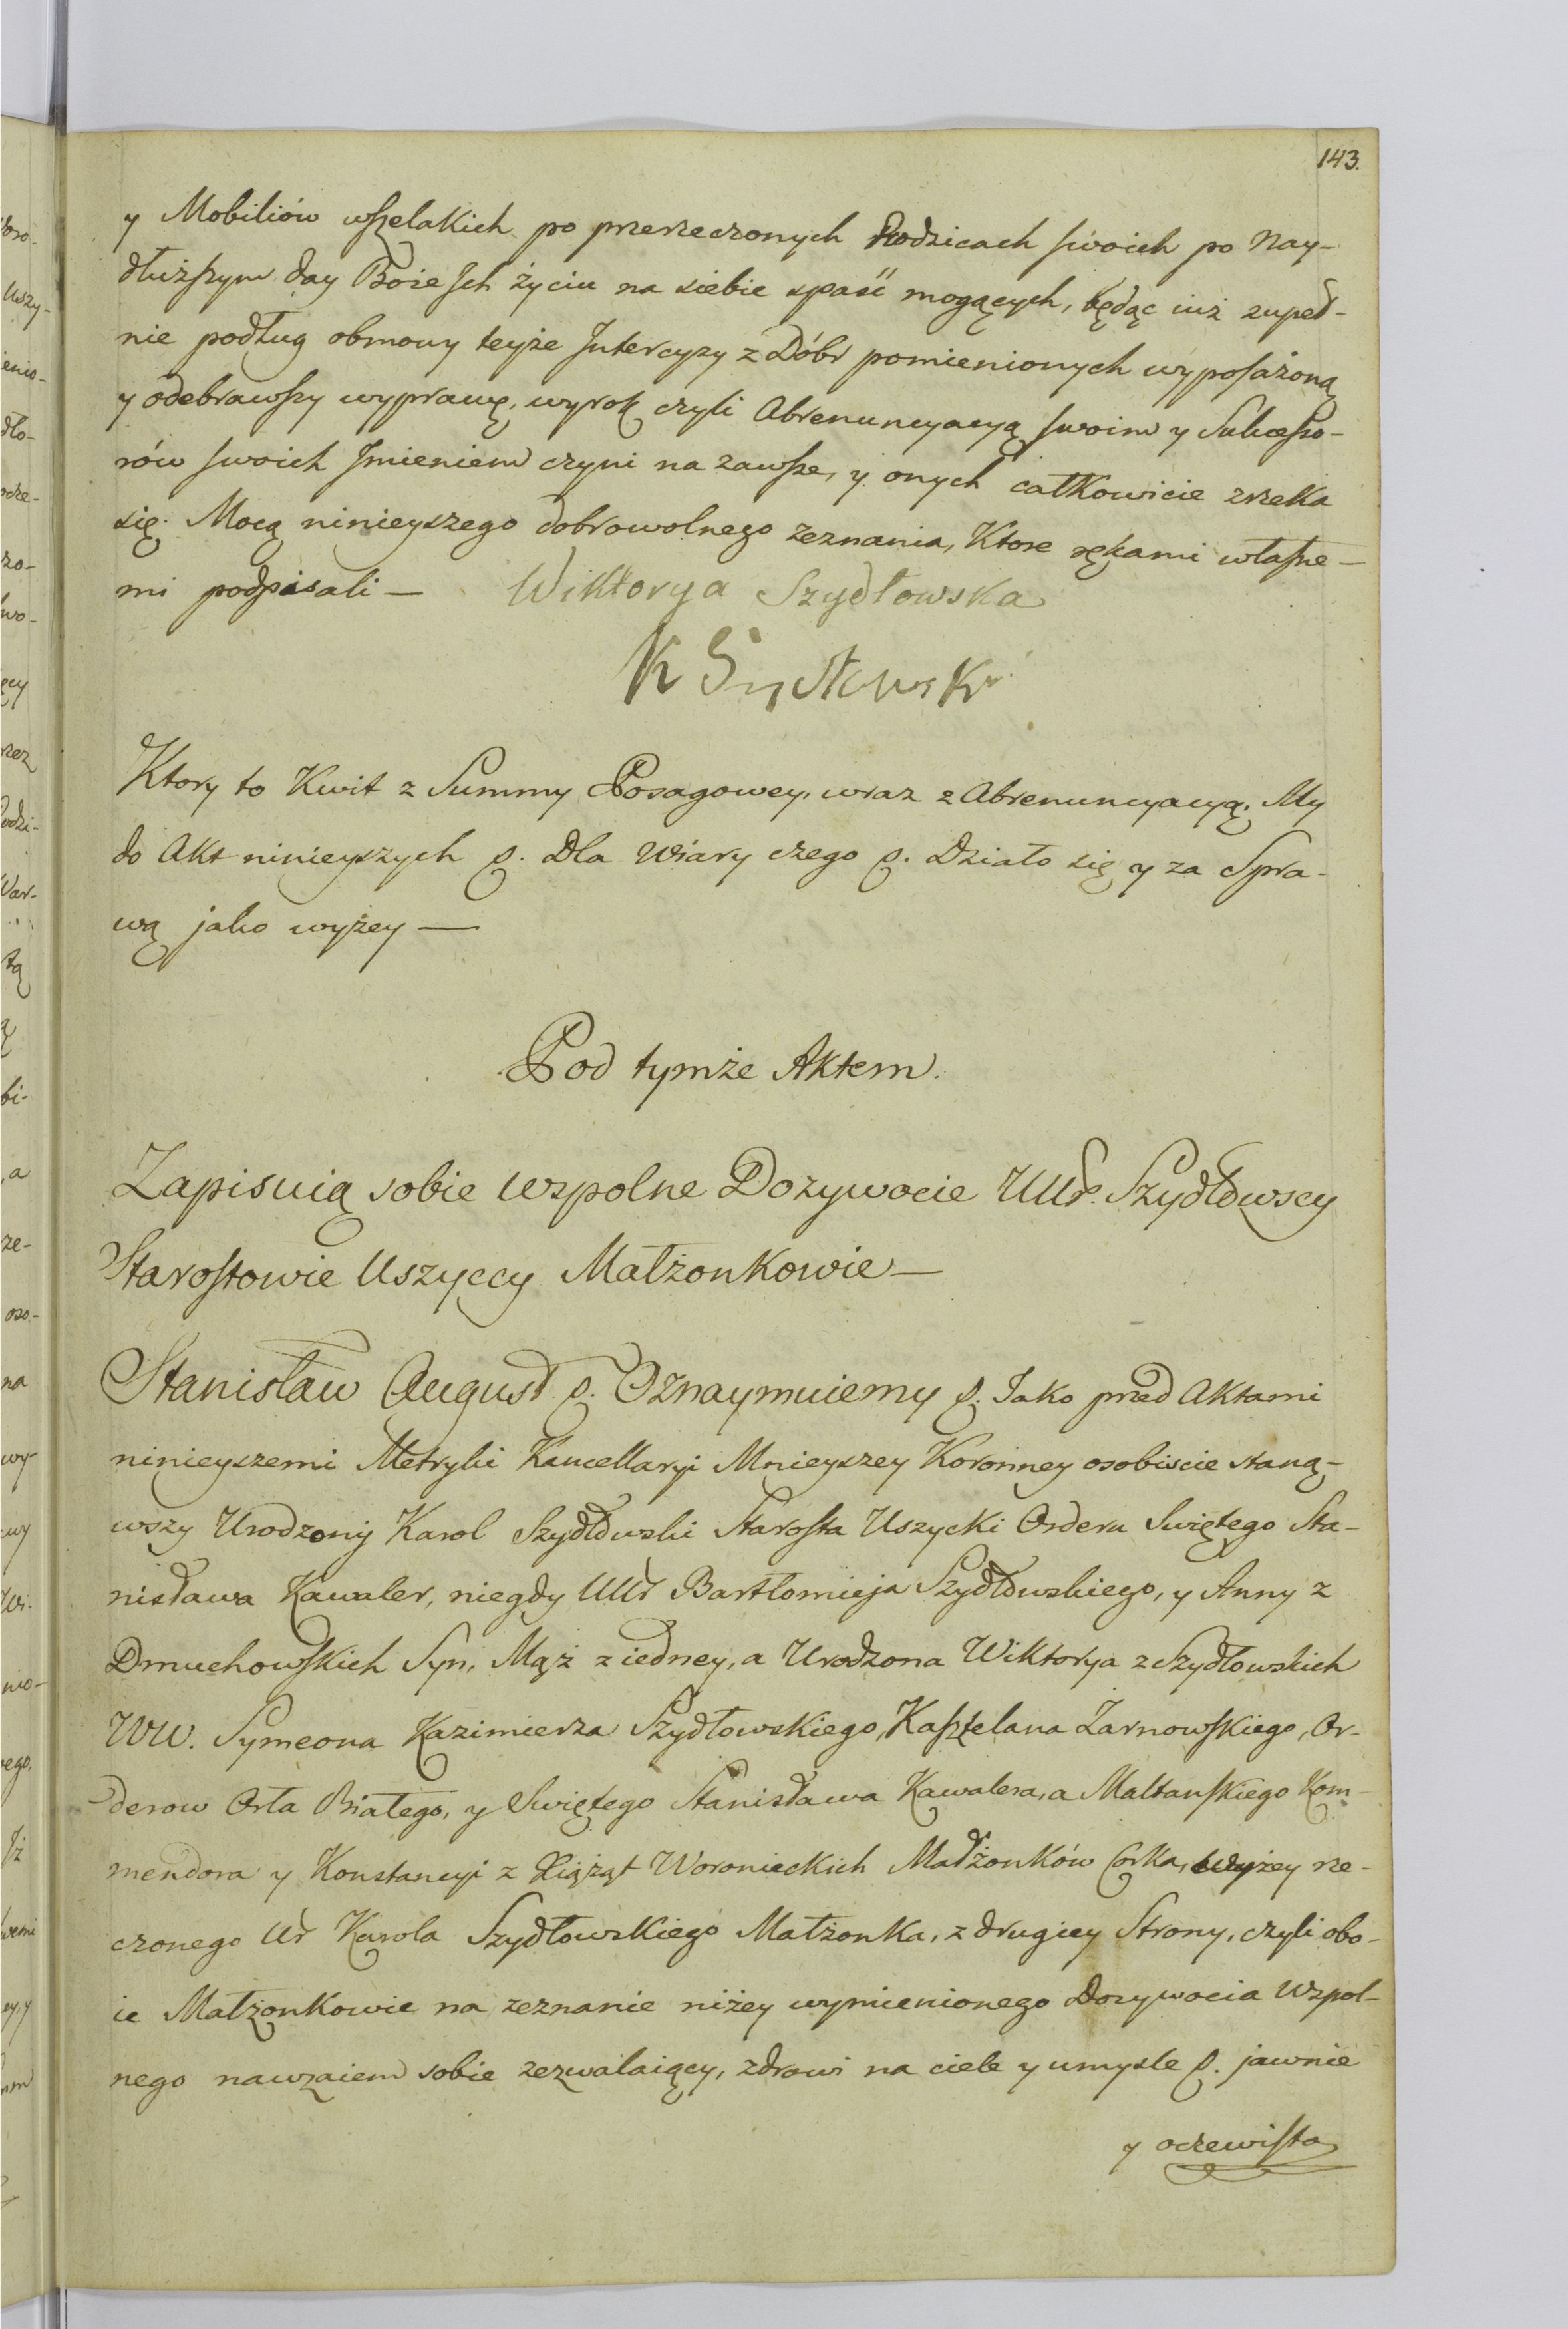 143.
y Mobiliów wszelakich po przerzeczonych Rodzicach swoich po Nay-
dłuższym day Boże Ich życiu na siebie spaść mogących, będąc iuż zupeł-
nie podług obmowy teyże Intercyzy z Dóbr pomienionych wyposażoną
y odebrawszy wyprawę, wyrok czyli Abrenuncyacyą swoim y Sukcesso-
rów swoich Imieniem czyni na zawsze, y onych całkowicie zrzeka
się. Mocą ninieyszego dobrowolnego zeznania, Ktore rękami własne-
mi podpisali — Wiktorya Szydłowska
K Szydłowski
Ktory to Kwit z Summy Posagowey, wraz z Abrenuncyacyą, My
do Akt ninieyszych p. Dla Wiary czego p. Działo się y za Spra-
wą jako wyżey —
Pod tymże Aktem.
Zapisuią sobie wspolne Dozywocie UUr. Szydłowscy
Starostowie Uszyccy Małżonkowie —
Stanisław August p. Oznaymuiemy p. Jako przed Aktami
ninieyszemi Metryki Kancellaryi Mnieyszey Koronney osobiscie staną-
wszy Urodzony Karol Szydłowski Starosta Uszycki Orderu Swiętego Sta-
nisława Kawaler, niegdy UUr Bartłomieja Szydłowskiego, y Anny z
Dmuchowskich Syn, Mąż z iedney, a Urodzona Wiktorya z Szydłowskich
WW. Symeona Kazimierza Szydłowskiego, Kasztelana Zarnowskiego, Or-
derow Orła Białego, y Swiętego Stanisława Kawalera, a Maltanskiego Kom-
mendora y Konstancyi z Xiążąt Woronieckich Małżonków Corka, wyżey rze-
czonego Ur Karola Szydłowskiego Małżonka, z drugiey Strony, czyli obo-
ie Małżonkowie na zeznanie niżey wymienionego Dozywocia Wspol-
nego nawzaiem sobie zezwalaiący, zdrowi na ciele y umysle p. jawnie
y oczewisto